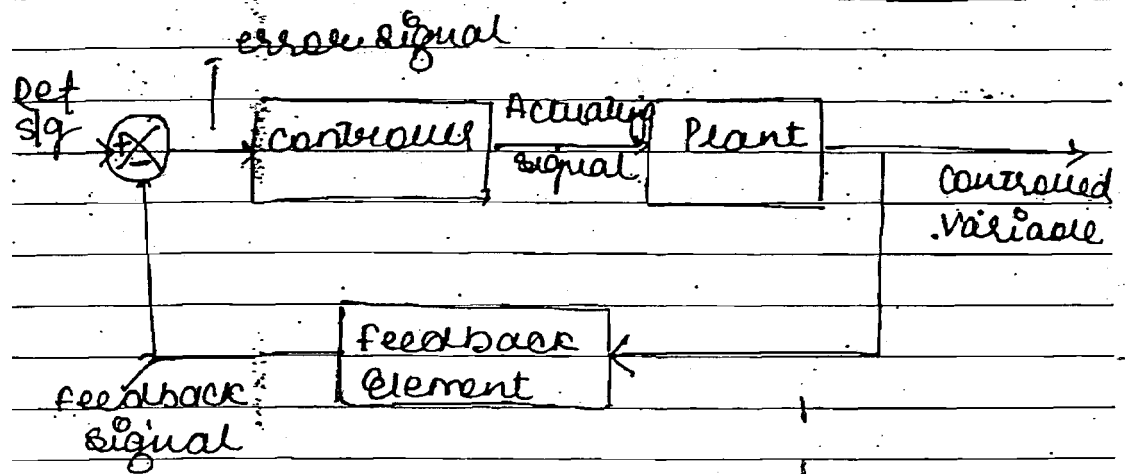 error signal
Ref
sig
+
-
controller
Actuating
signal
Plant
Controlled
variable
feedback
Element
feedback
signal